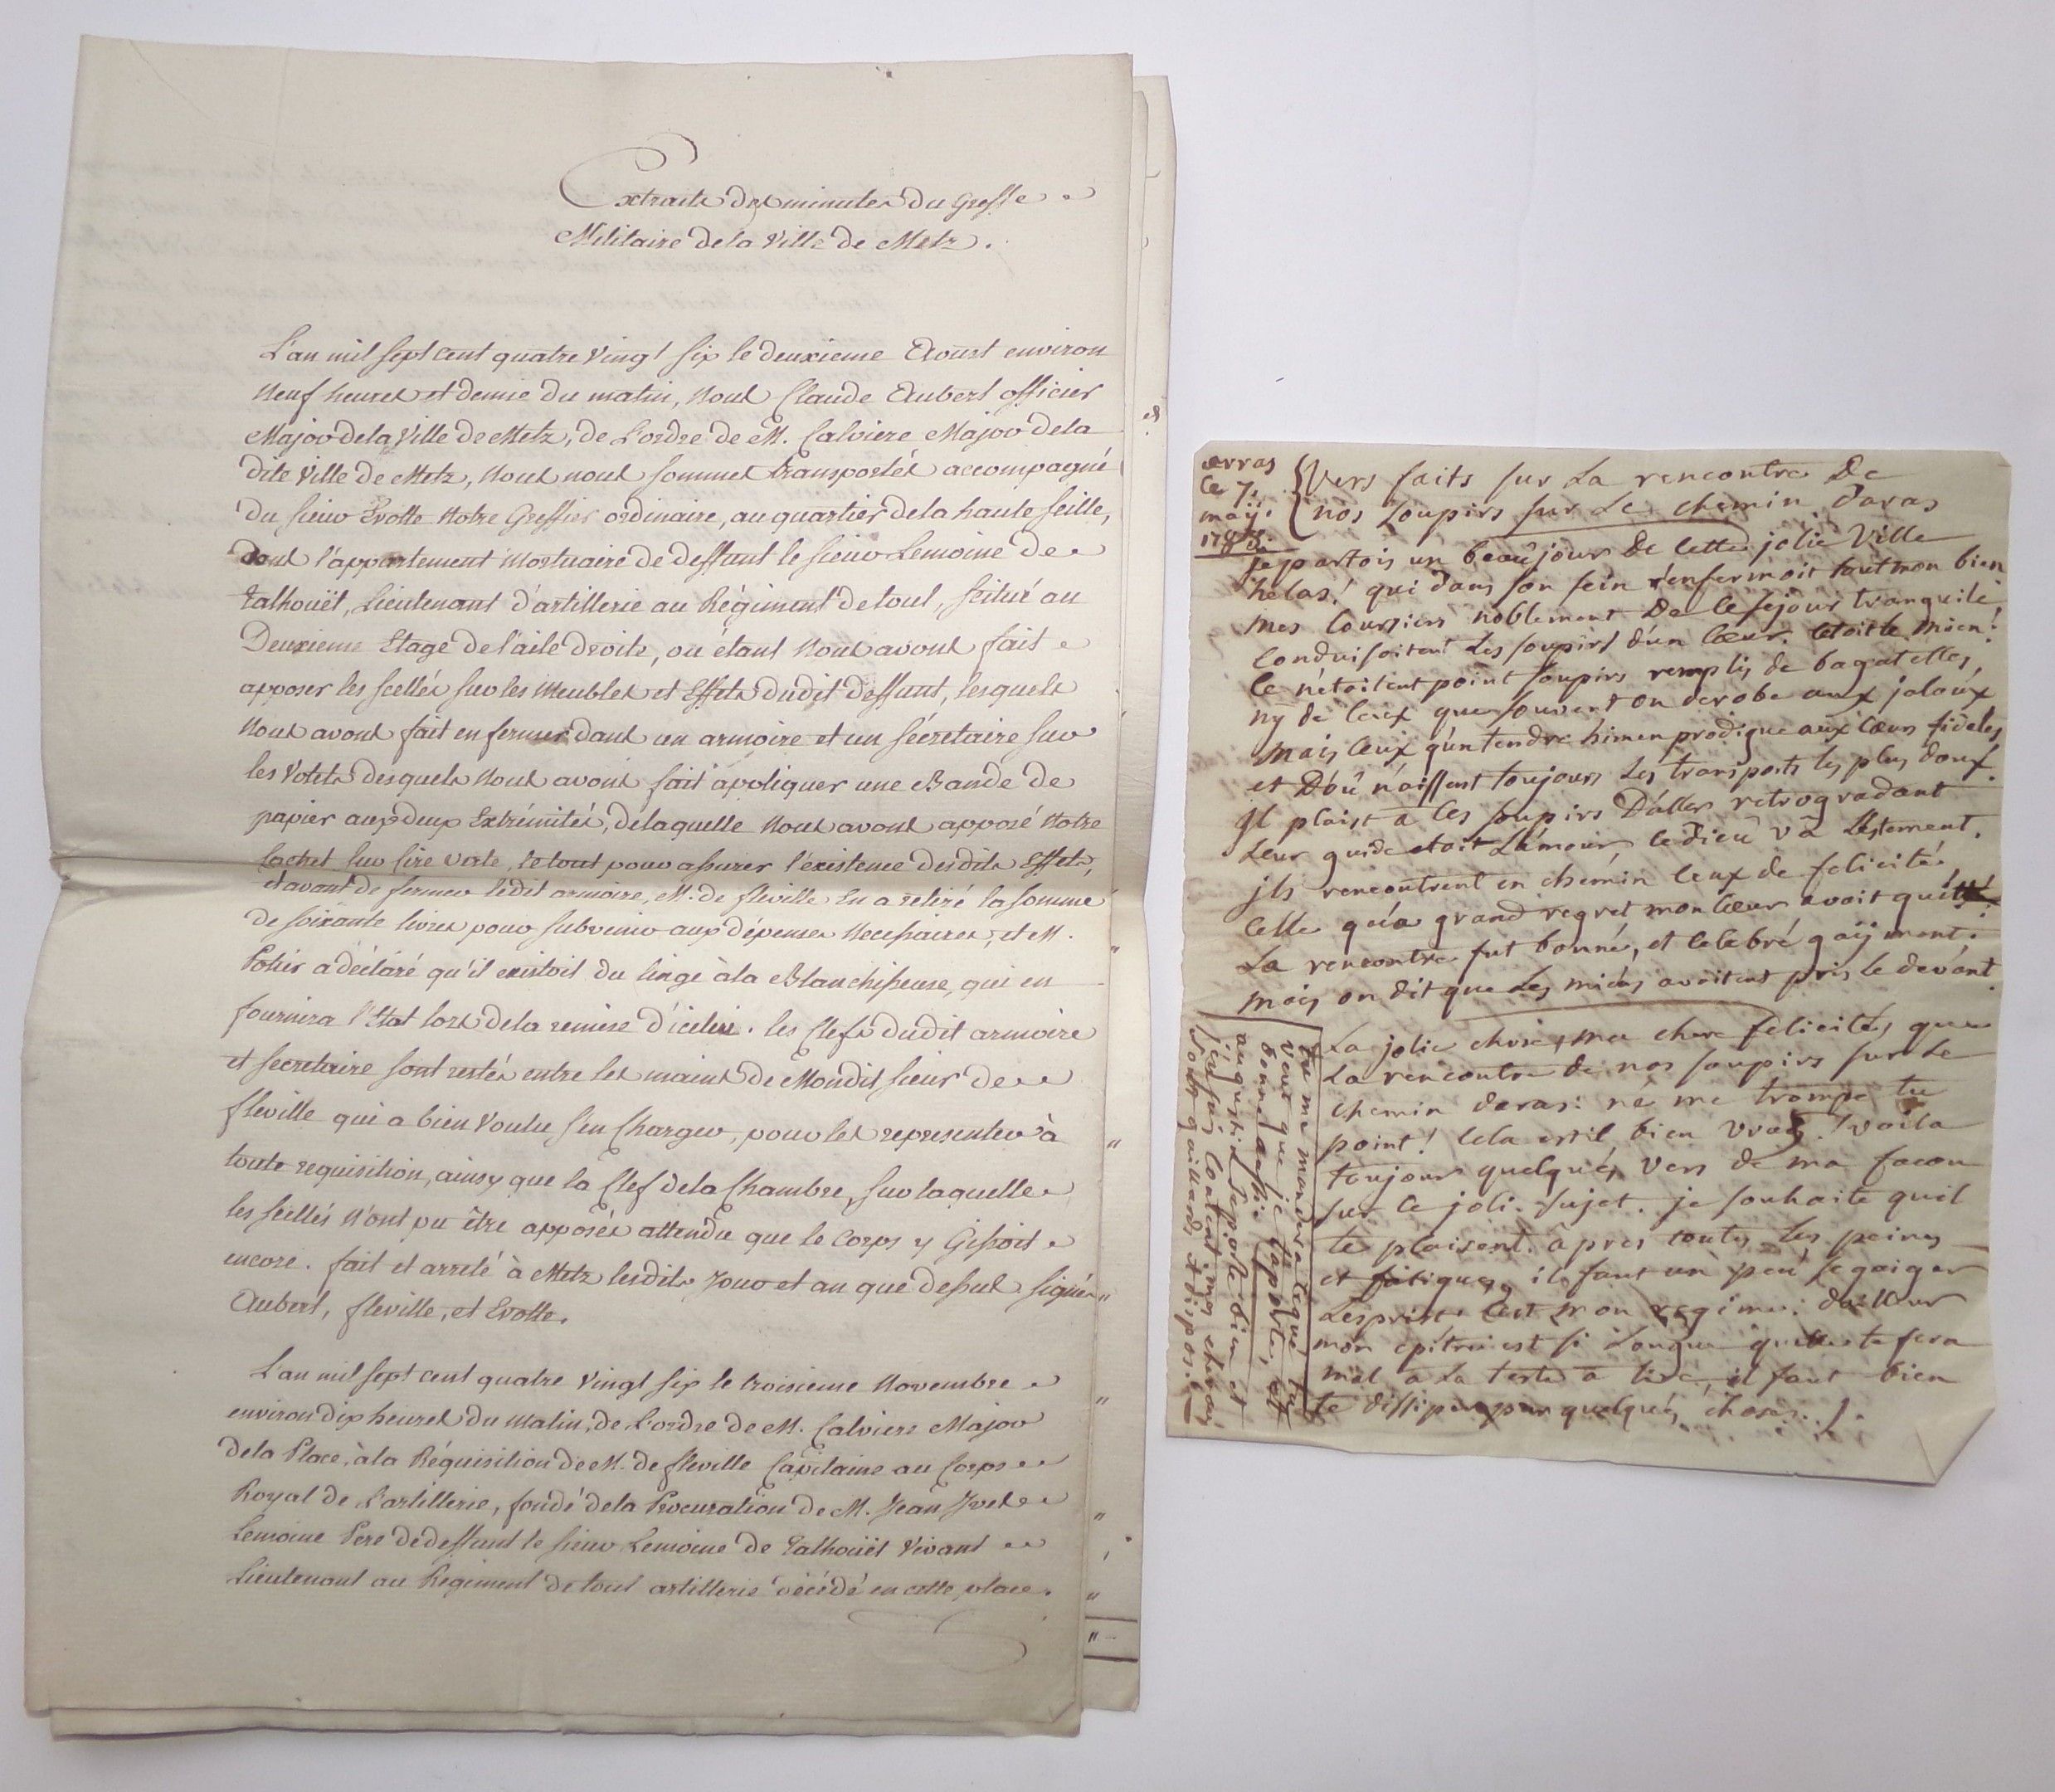 Extraits des minutes du Greffe
Militaire de la Ville de Metz.
L'an mil sept cent quatre Vingt six le deuxieme Aoust environ
Neuf heures et demie du matin, Nous Claude Aubert officier
Major de la Ville de Metz, de L'ordre de M. Calviere Major de la
dite Ville de Metz, Nous nous sommes transportés accompagné
du sieur Evotte Notre Greffier ordinaire, au quartier de la haute seille,
dans l'appartement Mortuaire de deffunt le sieur Lemoine de
Talhouët, Lieutenant d'artillerie au Régiment de toul, scitué au
Deuxieme Etage de l'aile droite, ou étant Nous avons fait
apposer les scellés sur les Meubles et Effets dudit deffunt, lesquels
Nous avons fait enfermer dans un armoire et un sécretaire sur
les Votets desquels Nous avons fait apoliquer une Bande de
papier aux deux Extrémités, de laquelle Nous avons apposé Notre
Cachet sur Cire verte, le tout pour assurer l'existence desdits Effets,
et avant de fermer ledit armoire, M. de fleville En a retiré la somme
de soixante livres pour subvenir aux dépenses Necessaires, et M.
Potier a déclaré qu'il existoit du linge à la Blanchisseuse, qui en
fournira l'Etat lors de la remise d'icelui. les Clefs dudit armoire
et secretaire sont restés entre les mains de Mondit sieur de
fleville qui a bien Voulu s'en Charger, pour les representer à
toute requisition, ainsy que la Clef de la Chambre, sur laquelle
les scellés N'ont pu être apposés attendu que le Corps y Gissoit
encore. fait et arreté à Metz lesdits Jour et an que dessus signés
Aubert, fleville, et Evotte.
L'an mil sept cent quatre Vingt six le troisieme Novembre
environ dix heures du matin, de L'ordre de M. Calviere Major
de la Place, à la Réquisition de M. de fleville Capitaine au Corps
Royal de L'artillerie, fondé de la Procuration de M. Jean Yves
Lemoine Pere de deffunt le sieur Lemoine de Talhouët Vivant
Lieutenant au Régiment de toul artillerie décédé en cette place.
arras
Ce 7.
may
Vers faits sur La rencontre De
nos soupirs sur Le chemin daras
je partois un beau jour De Cette jolie Ville
helas! qui dans son sein renfermoit tout mon bien
mes Coursiers noblement De Ce sejour tranquile
Conduisoitent Les soupirs d'un Cœur. Cétoit le mien!
Ce n'étoitent point soupirs remplis de bagatelles,
ny de Ceux que souvent on derobe aux jaloux
mais Ceux q'un tendre himen prodigue aux Cœurs fideles
et D'oû naissent toujours Les transports les plus doux.
il plaist a Ces soupirs D'aller retrogradant
Leur guide étoit L'amour ce Dieu va Lestement.
ils rencontrent en chemin Ceux de felicité
Celle qu'a grand regret mon Cœur avoit quitté
La rencontre fut bonne, et Celebré gaÿment.
mais on dit que Les miens avoitent pris le devant.
La jolie chose, ma chere felicité, que
La rencontre de nos soupirs sur Le
chemin daras: ne me trompe tu
point! Cela est il bien vray! voila
toujours quelques vers de ma facon
sur Ce joli sujet. je souhaite quil
te plaisent. apres toutes Les peines
et fatigues, il faut un peu segaiger
Lesprit. Cest mon regime: dailleur
mon epitre est si Longue quelle te fera
mal a La teste a lire, il faut bien
te dissiper par quelques choses.
tu me mandera Ce que tu
veut que je t'aporte, est
bonne aussi
au quartier. repose bien et
j'en suis Content, mes chevaux
sont gaillards et dispos.